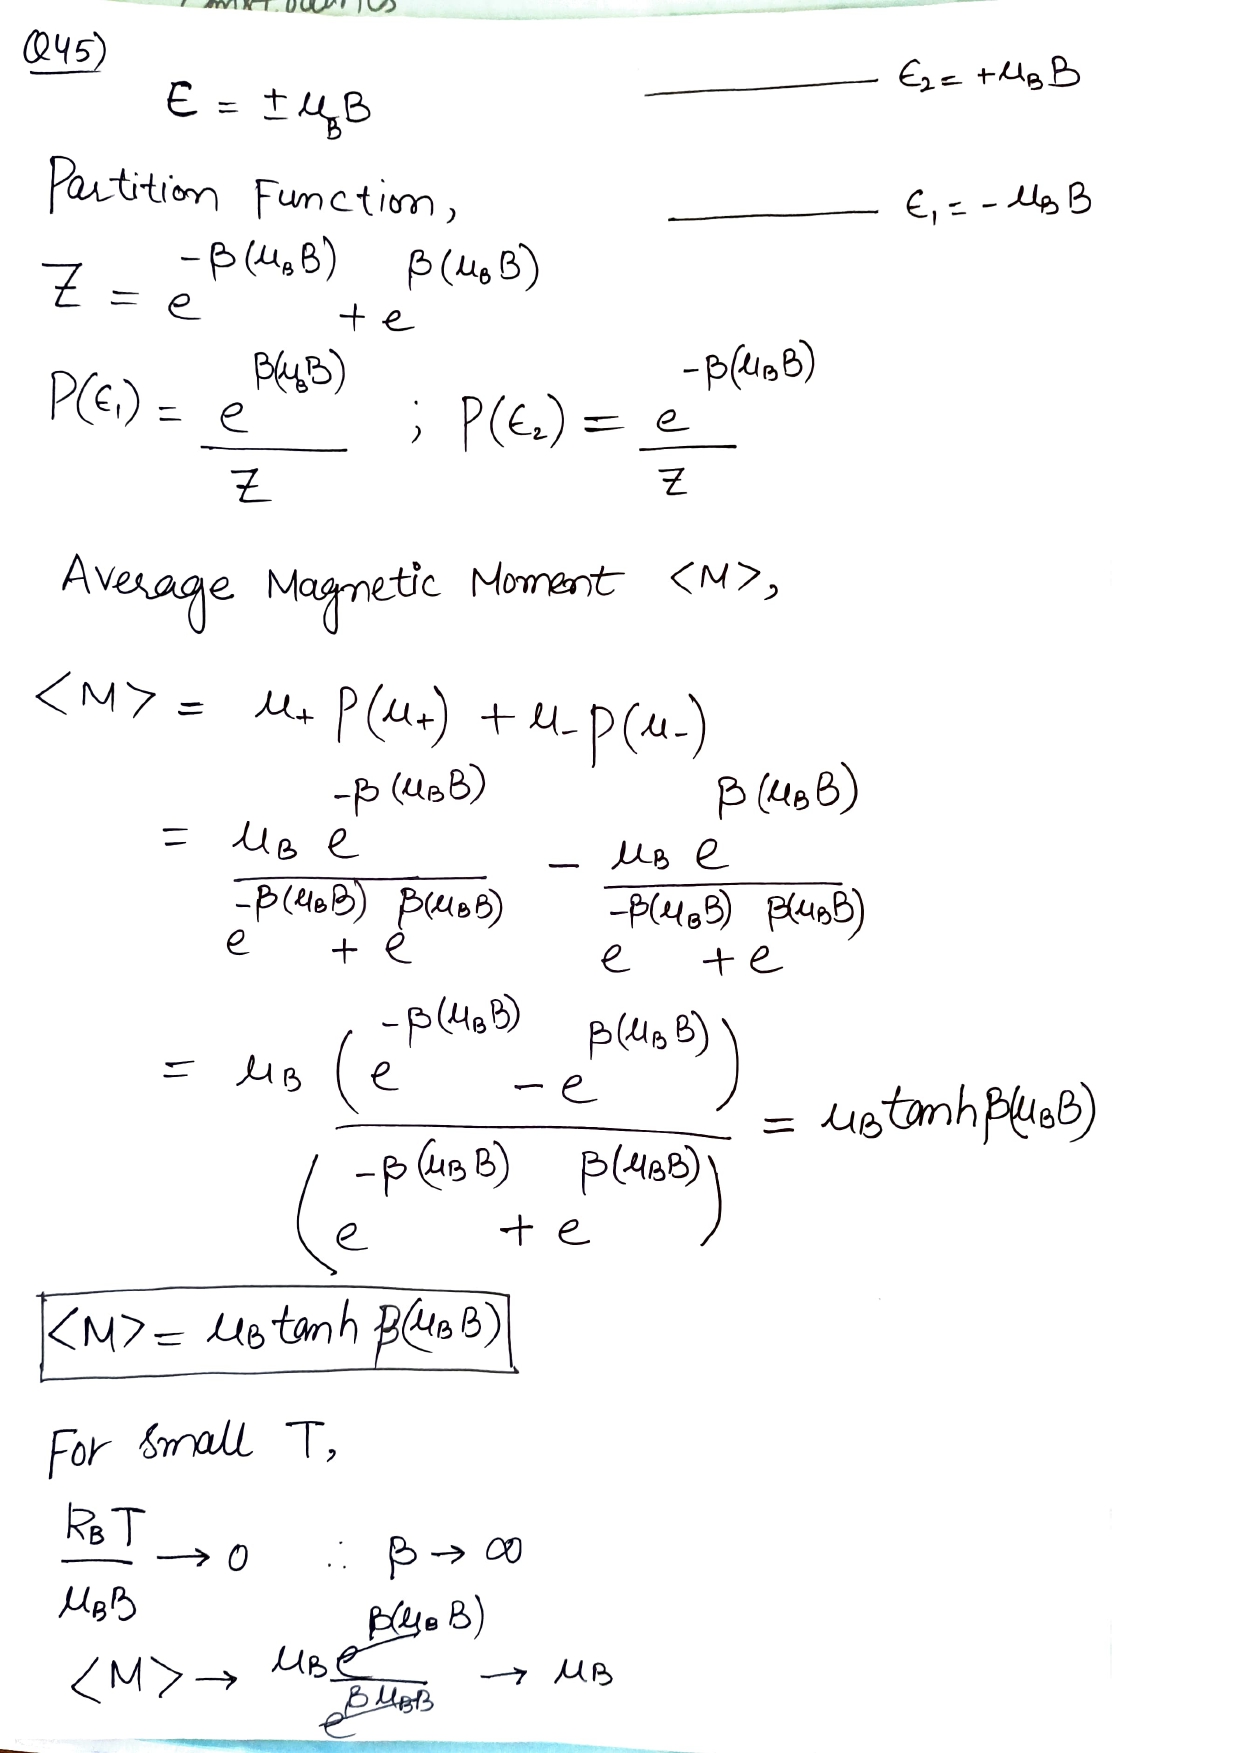 Q45)
E = ± μ_B B
ϵ₂ = +μ_B B
Partition Function,
ϵ₁ = - μ_B B
Z = e^{-β(μ_B B)} + e^{β(μ_B B)}
P(ϵ₁) = e^{β(μ_B B)} / Z ; P(ϵ₂) = e^{-β(μ_B B)} / Z
Average Magnetic Moment <M>,
<M> = μ₊ P(μ₊) + μ₋ P(μ₋)
= μ_B e^{-β(μ_B B)} / e^{-β(μ_B B)} + e^{β(μ_B B)} - μ_B e^{β(μ_B B)} / e^{-β(μ_B B)} + e^{β(μ_B B)}
= μ_B (e^{-β(μ_B B)} - e^{β(μ_B B)}) / (e^{-β(μ_B B)} + e^{β(μ_B B)}) = μ_B tanh β(μ_B B)
<M> = μ_B tanh β(μ_B B)
For small T,
k_B T / μ_B B → 0 ∴ β → ∞
<M> → μ_B e^{β(μ_B B)} / e^{β μ_B B} → μ_B